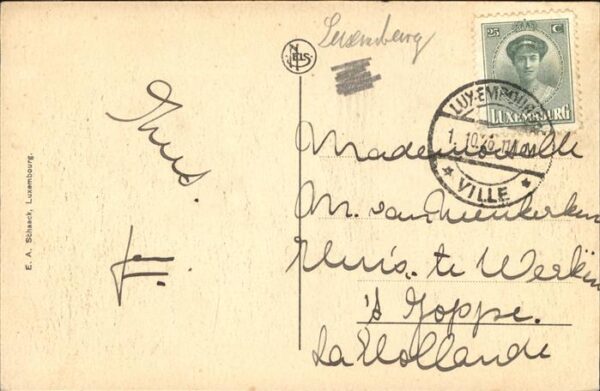 Luxemburg
NELS
25 C
LUXEMBOURG
LUXEMBOURG
1.10.26
* VILLE *
Mademoiselle
M. van
Huis. te Werkin
's Joppe.
La Hollande
Thuis.
E. A. Schaack, Luxembourg.